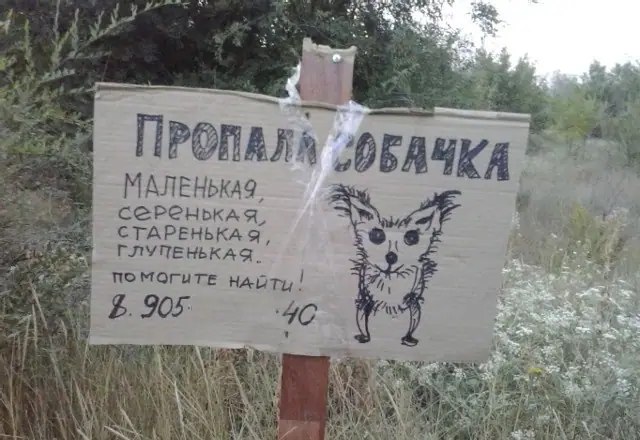 ПРОПАЛА СОБАЧКА
МАЛЕНЬКАЯ,
СЕРЕНЬКАЯ,
СТАРЕНЬКАЯ,
ГЛУПЕНЬКАЯ.
ПОМОГИТЕ НАЙТИ!
8. 905. .40